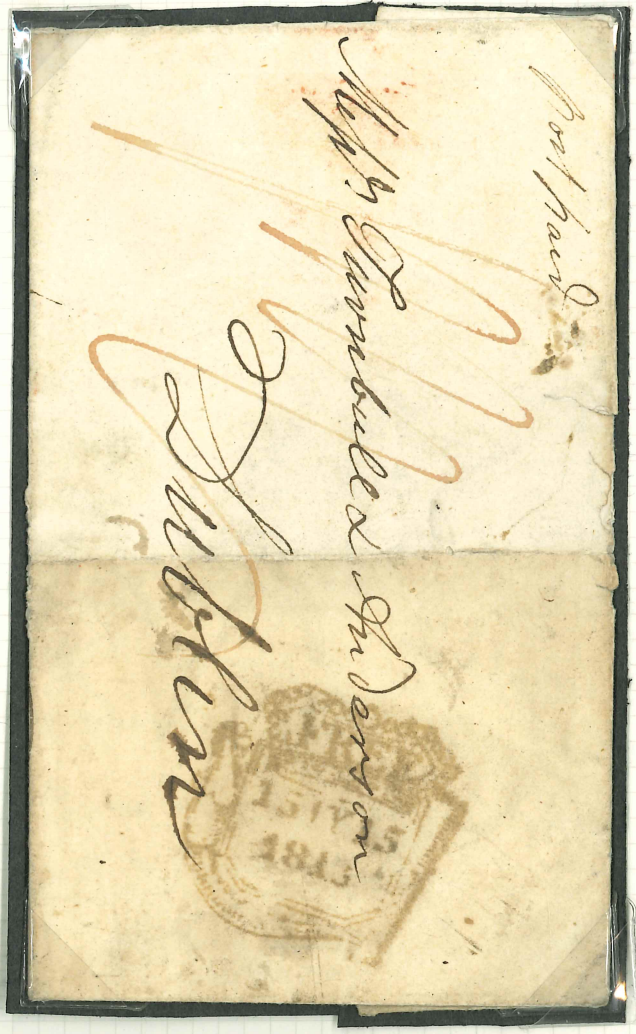 Post Paid
Messrs Turnbull & Anderson
Dublin
FREE
15 5
181